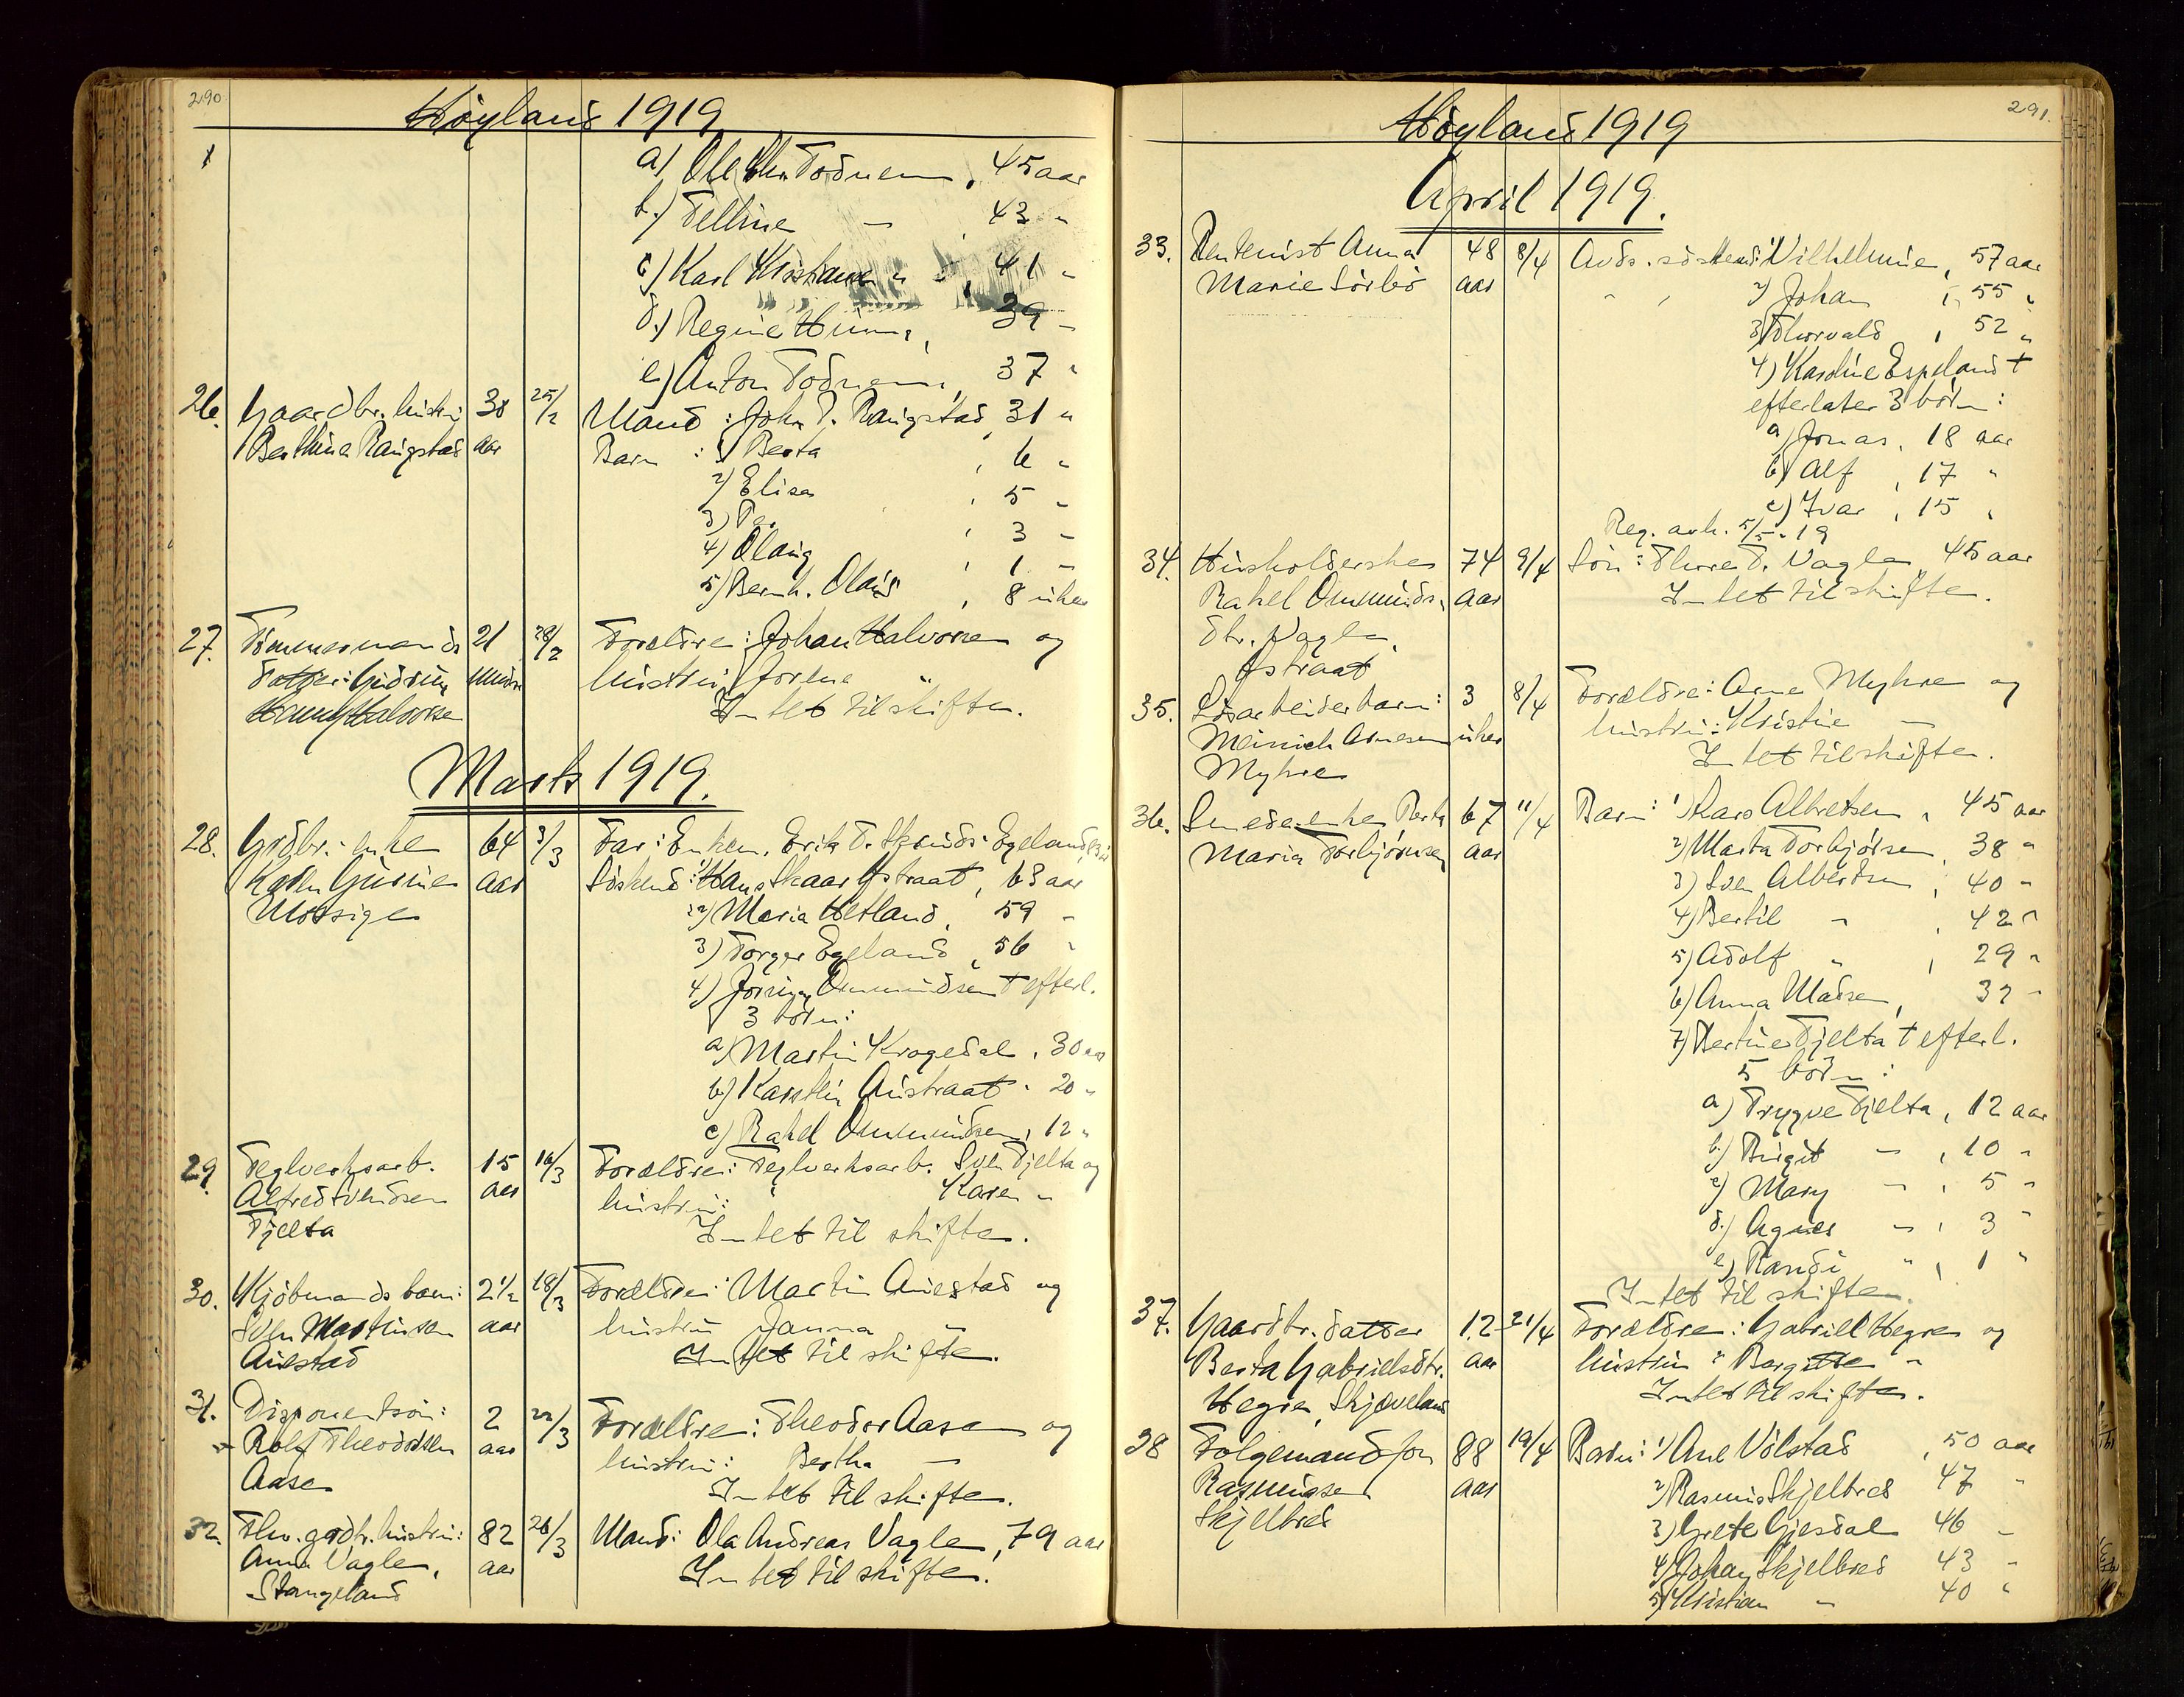 290
Höyland 1919
a) Ole Chr. Todnem, 45 aar
b.) Telline — , 43 "
c) Karl Kristian " - , 41 "
d.) Regine Hinna, 39 -
e) Anton Todnem, 37 "
26. Gaardbr. hustru 30 25/2 Mand : John T. Raugstad, 31 "
Berthine Raugstad aar Barn : 1) Berta , 6 "
2) Elisa , 5 "
3) , 3 -
4) Olaug , 1 -
5) Bernh. Olaus , 8 uker
27. Tömmermands 21 28/2 Forældre : Johan Halvorsen og
Datter: Gudrun hustru Jorine "
Halvorsen Intet til skifte.
Marts 1919.
28. Grdbr.- enke 64 3/3 Far : Enkem. Erik T. Skeids- Egeland,
Karen Gurine aar Söskend : 1) Hans Skaar Ystraat, 63 aar
Mossige 2) Maria Hetland, 59 -
3) Torger Egeland, 56 "
4) Ommundsen † efterl.
3 börn:
a) Martin Krogedal, 30 aar
b) Karstin Austraat, 20 "
c) Rakel Ommundsen, 12 "
29. Teglverksarb. 15 16/3 Forældre: Teglverksarb. Sven Tjelta og
Alfred Svendsen aar hustru: Karen "
Tjelta Intet til skifte.
30. Kjöbmands barn: 2 1/2 18/3 Forældre: Martin Auestad og
Sven Martinsen aar hustru Janna "
Auestad Intet til skifte.
31. Disponentsön: 2 22/3 Forældre : Theodor Aase og
Rolf Theodorsen aar hustru: Bertha —
Aase Intet til skifte.
32. Fhv. grdbr. hustru: 82 26/3 Mand: Ola Andreas Vagle, 79 aar
Anna Vagle, aar Intet til skifte.
Stangeland
291.
Höyland 1919
April 1919.
33. Rentenist Anna 48 8/4 Avds. söskend: 1) Vilhelmine, 57 aar
Marie Sörbö aar 2) Johan , 55 "
3) Thorvald , 52 "
4) Karoline Espeland †
efterlater 3 börn :
a) Jonas, 18 aar
b) Alf , 17 "
c) Ivar , 15 "
Reg. avh. 5/5 - 19
34. Husholderske 74 9/4 Sön : Thore T. Vagle, 45 aar
Rakel Ommunds- aar Intet til skifte.
dtr. Vagle,
Ystraat
35. Lösarbeiderbarn: 3 8/4 Forældre : Arne Myhre og
Meinich Arnesen uker hustru : Kristine —
Myhre Intet til skifte.
36. Smedenke Berta 67 11/4 Barn : 1) Lars Albretsen, 45 aar
Maria Torbjörnsen aar 2) Marta Torbjörnsen, 38 "
3) Sven Albertsen , 40 "
4) Bertil " , 42 "
5) Adolf " , 29 "
6) Anna Madsen , 32 "
7) Bertine Tjelta † efterl.
5 börn :
a) Trygve Tjelta, 12 aar
b.) Birgit — , 10 "
c) Mary — , 5 "
d.) Agnes — , 3 "
e) Randi " , 1 "
Intet til skifte.
37. Gaardbr. datter 12 21/4 Forældre : Gabriel Hegre og
Berta Gabrielsdtr. aar hustru : Bergitte "
Hegre, Skjæveland Intet til skifte.
38 Folgemand Jon 88 19/4 Barn: 1) Ane Völstad , 50 aar
Rasmussen aar 2) Rasmus Skjelbred 47 "
Skjelbred 3) Grete Gjesdal 46 -
4) Johan Skjelbred 43 "
5) Kristian " 40 "